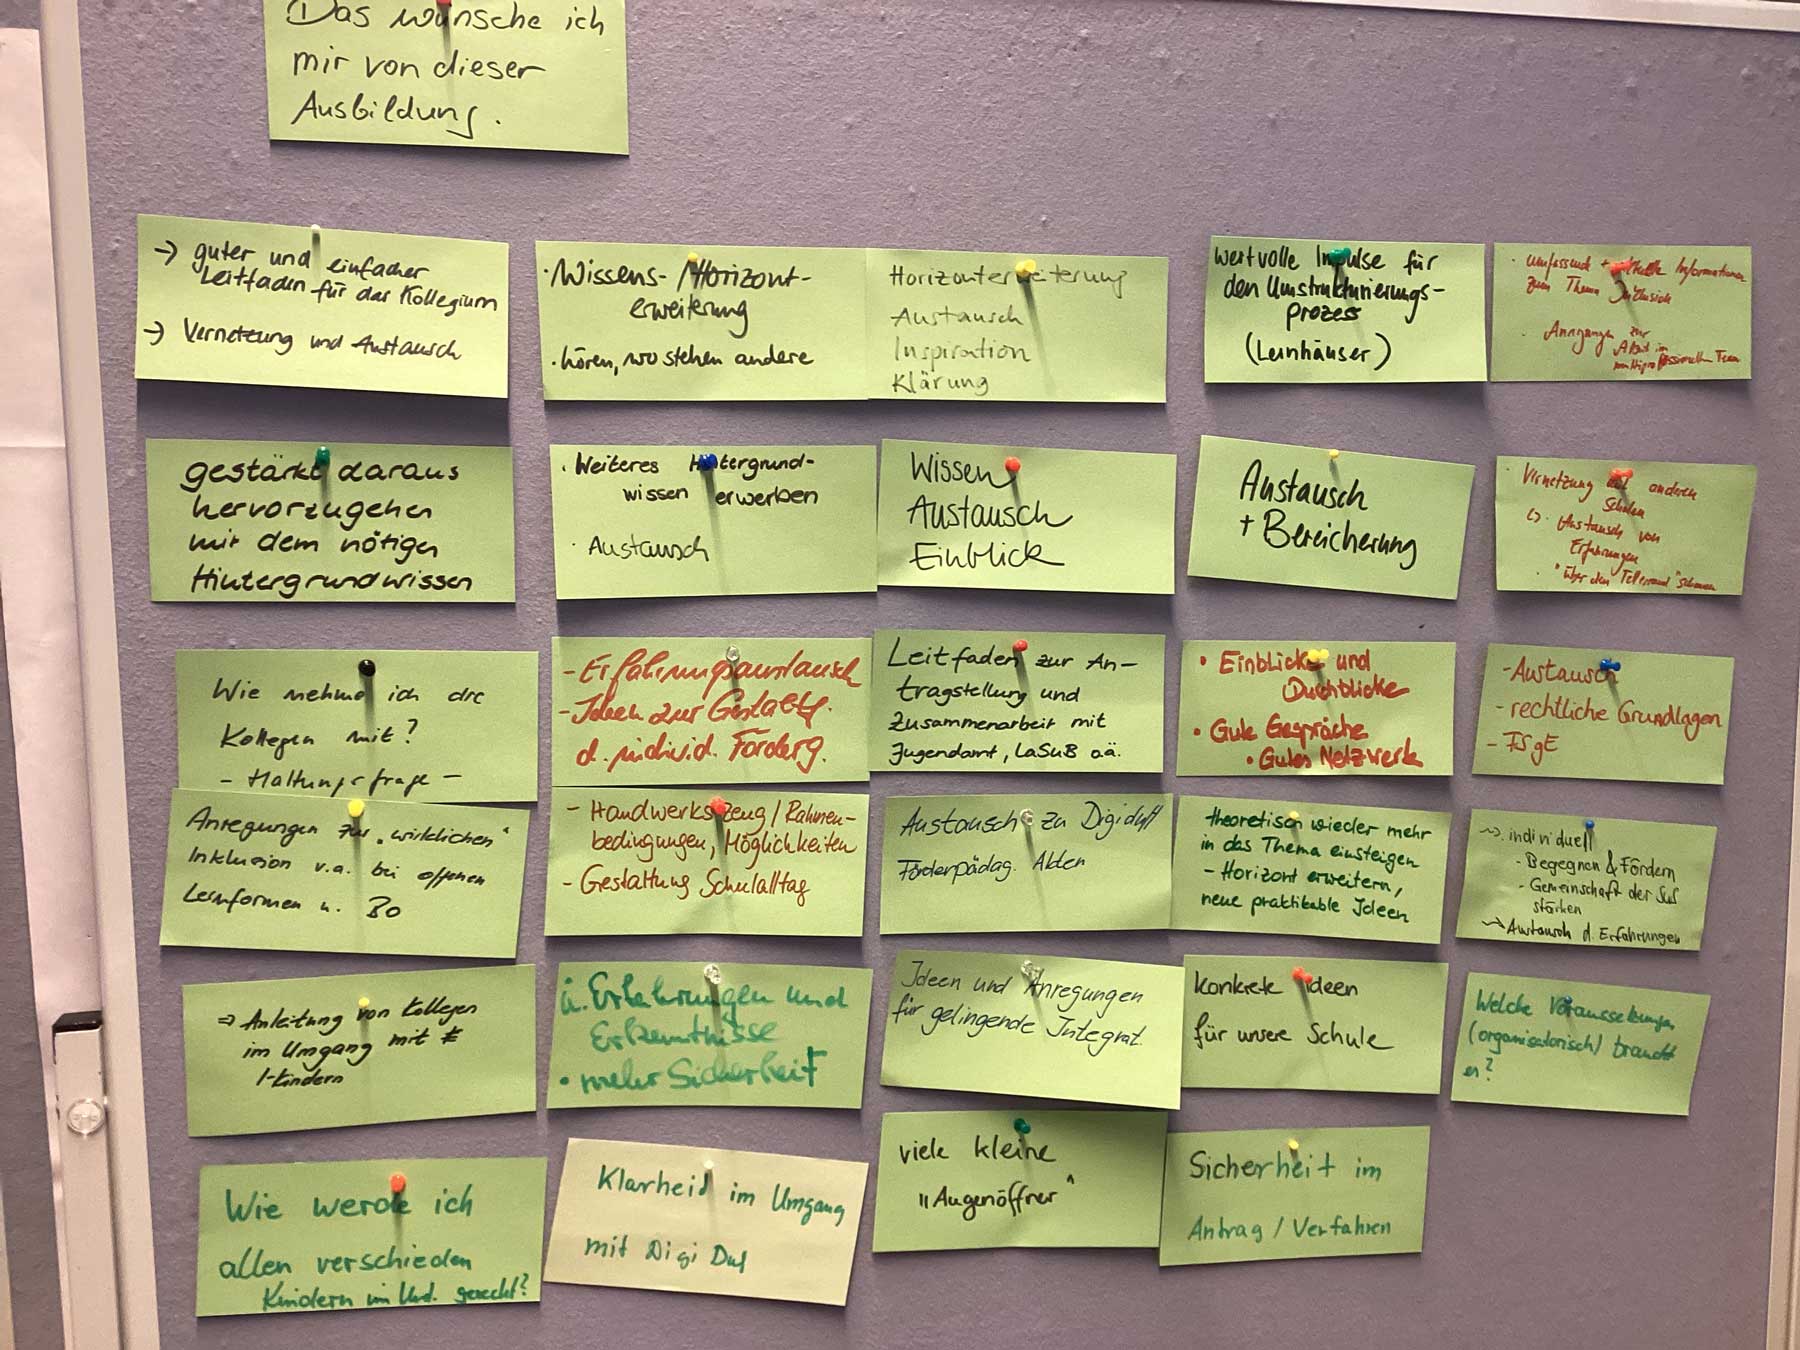 Das wünsche ich
mir von dieser
Ausbildung.
→ guter und einfacher
Leitfaden für das Kollegium
→ Vernetzung und Austausch
· Wissens- / Horizont-
erweiterung
· hören, wo stehen andere
Horizonterweiterung
Austausch
Inspiration
Klärung
wertvolle Impulse für
den Umstrukturierungs-
prozess
(Lernhäuser)
· umfassend + Informationen
zum Thema Inklusion
· Anregungen zur
Arbeit im
multiprofessionellen Team
gestärkt daraus
hervorzugehen
mit dem nötigen
Hintergrundwissen
· Weiteres Hintergrund-
wissen erwerben
· Austausch
Wissen
Austausch
Einblick
Austausch
+ Bereicherung
· Vernetzung mit anderen
Schulen
↳ Austausch von
Erfahrungen
· "über den Tellerrand" schauen
Wie nehme ich die
Kollegen mit?
- Haltungsfrage -
- Erfahrungsaustausch
- Ideen zur Gestaltg.
d. individ. Förderg.
Leitfaden zur An-
tragstellung und
Zusammenarbeit mit
Jugendamt, LaSuB o.ä.
• Einblicke und
Durchblicke
• Gute Gespräche
• Gutes Netzwerk
- Austausch
- rechtliche Grundlagen
- FSgE
Anregungen zur „wirklichen"
Inklusion v.a. bei offenen
Lernformen u. BO
- Handwerkszeug / Rahmen-
bedingungen, Möglichkeiten
- Gestaltung Schulalltag
Austausch zu Digiduf
Förderpädag. Akten
theoretisch wieder mehr
in das Thema einsteigen
- Horizont erweitern,
neue praktikable Ideen
→ individuell
- Begegnen & Fördern
- Gemeinschaft der SuS
stärken
→ Austausch d. Erfahrungen
⇒ Anleitung von Kollegen
im Umgang mit
I-Kindern
ü. Erfahrungen und
Erkenntnisse
• mehr Sicherheit
Ideen und Anregungen
für gelingende Integrat.
konkrete Ideen
für unsere Schule
Welche Voraussetzungen
(organisatorisch) braucht
er?
Wie werde ich
allen verschieden
Kindern im Unt. gerecht?
Klarheid im Umgang
mit Digi Duf
viele kleine
"Augenöffner"
Sicherheit im
Antrag / Verfahren